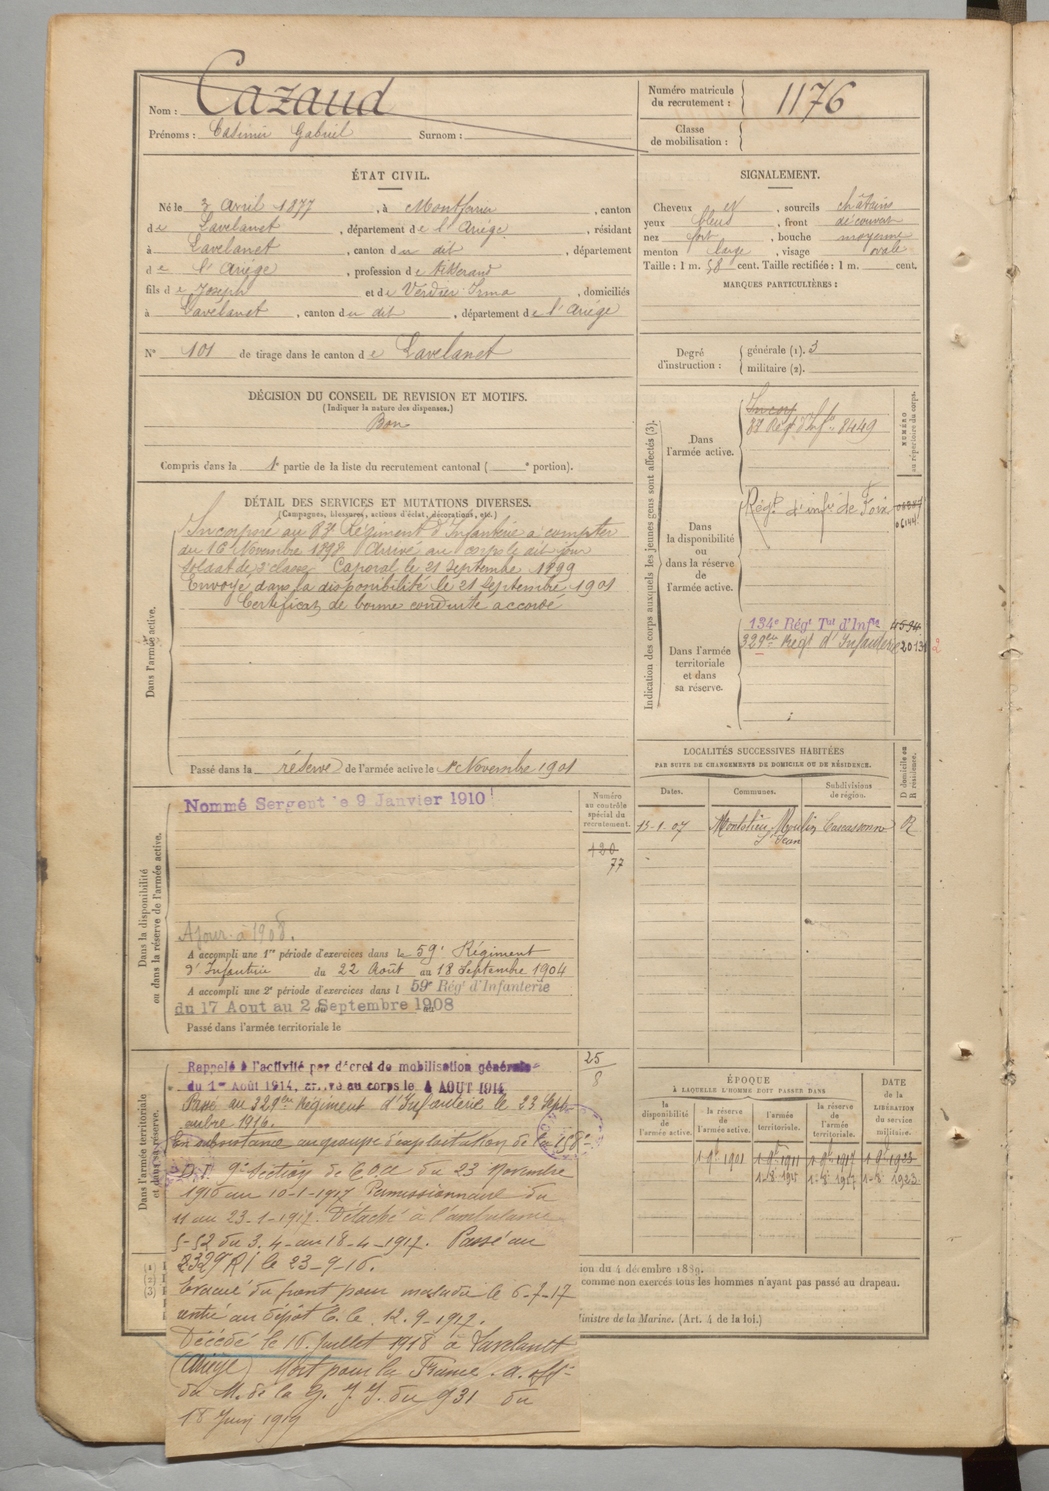 Nom : Cazaud
Prénoms : Casimir Gabriel Surnom :
Numéro matricule du recrutement : 1176
Classe de mobilisation :
ÉTAT CIVIL.
Né le 3 Avril 1877, à Montferrier, canton
de Lavelanet, département de l'Ariège, résidant
à Lavelanet, canton du dit, département
de l'Ariège, profession de Tisserand
fils de Joseph et de Verdier Irma, domiciliés
à Lavelanet, canton du dit, département de l'Ariège
N° 101 de tirage dans le canton de Lavelanet
SIGNALEMENT.
Cheveux et, sourcils châtains
yeux bleus, front découvert
nez fort, bouche moyenne
menton large, visage ovale
Taille : 1 m. 58 cent. Taille rectifiée : 1 m. cent.
MARQUES PARTICULIÈRES :
Degré d'instruction : générale (1). 3
militaire (2).
DÉCISION DU CONSEIL DE REVISION ET MOTIFS.
(Indiquer la nature des dispenses.)
Bon
Compris dans la 1e partie de la liste du recrutement cantonal ( e portion).
DÉTAIL DES SERVICES ET MUTATIONS DIVERSES.
(Campagnes, blessures, actions d'éclat, décorations, etc.)
Dans l'armée active.
Incorporé au 87e Régiment d'Infanterie à compter
du 16 Novembre 1898 Arrivé au corps le dit jour
soldat de 2e classe Caporal le 21 Septembre 1899
Envoyé dans la disponibilité le 21 Septembre 1901
Certificat de bonne conduite accordé
Passé dans la réserve de l'armée active le 1er Novembre 1901
Indication des corps auxquels les jeunes gens sont affectés (3).
NUMÉRO au répertoire du corps.
Dans l'armée active.
Incorp
87 Rég d'Inf. 8449
Dans la disponibilité ou dans la réserve de l'armée active.
Régt d'infie de Foix
Dans l'armée territoriale et dans sa réserve.
134e Régt Tal d'Infie 4594
329em Régt d'Infanterie 20131
LOCALITÉS SUCCESSIVES HABITÉES
PAR SUITE DE CHANGEMENTS DE DOMICILE OU DE RÉSIDENCE.
Dates. Communes. Subdivisions de région. D domicile ou R résidence.
13-1-07 Montolieu, Moulin St Jean Carcassonne R
Dans la disponibilité ou dans la réserve de l'armée active.
Numéro au contrôle spécial du recrutement.
420
77
Nommé Sergent le 9 Janvier 1910
Ajour. à 1908.
A accompli une 1re période d'exercices dans le 59e Régiment
d'Infanterie du 22 Août au 18 Septembre 1904
A accompli une 2e période d'exercices dans l 59e Régt d'Infanterie
du 17 Aout au 2 Septembre 1908
Passé dans l'armée territoriale le
Dans l'armée territoriale et dans sa réserve.
25
8
Rappelé à l'activité par décret de mobilisation générale
du 1er Août 1914, arrivé au corps le 4 AOUT 1914
Passé au 329em Régiment d'Infanterie le 23 Sept
embre 1916.
En subsistance au groupe d'exploitation de la 158e
D.I. 9e Section de C.O.A du 23 Novembre
1916 au 10-1-1917 Permissionnaire du
11 au 23-1-1917. Détaché à l'ambulance
5-52 du 3.4 au 18-4-1917. Passé au
329e RI le 23-9-16.
Evacué du front pour maladie le 6-7-17
entré au dépôt C. le 12.9-1917.
Décédé le 16 Juillet 1918 à Lavelanet
(Ariège) Mort pour la France. A. off.
du M. de la G. du 931 du
18 Juin 1919
ÉPOQUE
À LAQUELLE L'HOMME DOIT PASSER DANS
la disponibilité de l'armée active. la réserve de l'armée active. l'armée territoriale. la réserve de l'armée territoriale.
DATE de la LIBÉRATION du service militaire.
1-9-1901 1-9-1911 1-9-1917 1-9-1923
1-8-1911 1-8-1917 1-8-1923
ion du 4 décembre 1889.
comme non exercés tous les hommes n'ayant pas passé au drapeau.
Ministre de la Marine. (Art. 4 de la loi.)